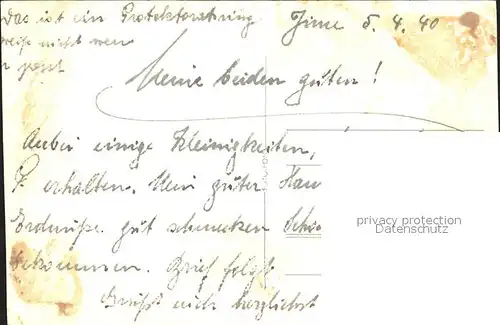 Das ist ein Protektoratring Jime 5. 4. 40
weiss nicht wer
r passt
Meine beiden guten!
Anbei einige Kleinigkeiten,
P. erhalten. Mein guter Hau
Erdnüße gut schmecken Schö
bekommen. Brief folgt
Grüßt euch herzlichst
privacy protection
Datenschutz